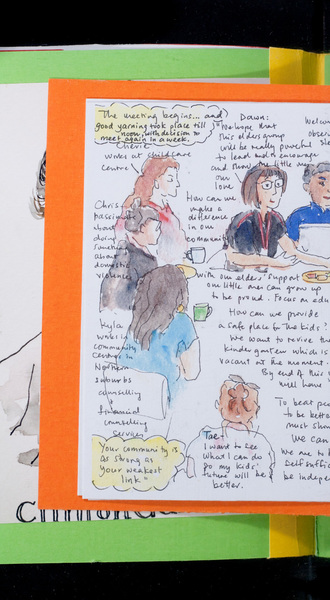 The meeting begins... and
good yarning took place till
noon, with decision to
meet again in a week.
Cherie
works at childcare
centre
Dawn:
"We hope that
this elders group
will be really powerful
to lead and encourage
and show the little ones
our
love
Welcom
obse
How can we
make a
difference
in our
community
Chris
passionate
about
doing
something
about
domestic
violence
with our elders' support
our little ones can grow up
to be proud. Focus on edu
How can we provide
a safe place for the kids?
We want to revive the
kindergarten which is
vacant at the moment.
By end of this y
we'll have
Kyla
works in
community
Centre in
Northern
suburbs
counselling
&
financial
counselling
services
To beat
to be bette
must sho
We can
we are to b
self suffi
be indepe
Tae:
I want to see
what I can do
so my kids'
future will be
better.
"Your community is
as strong as
your weakest
link."